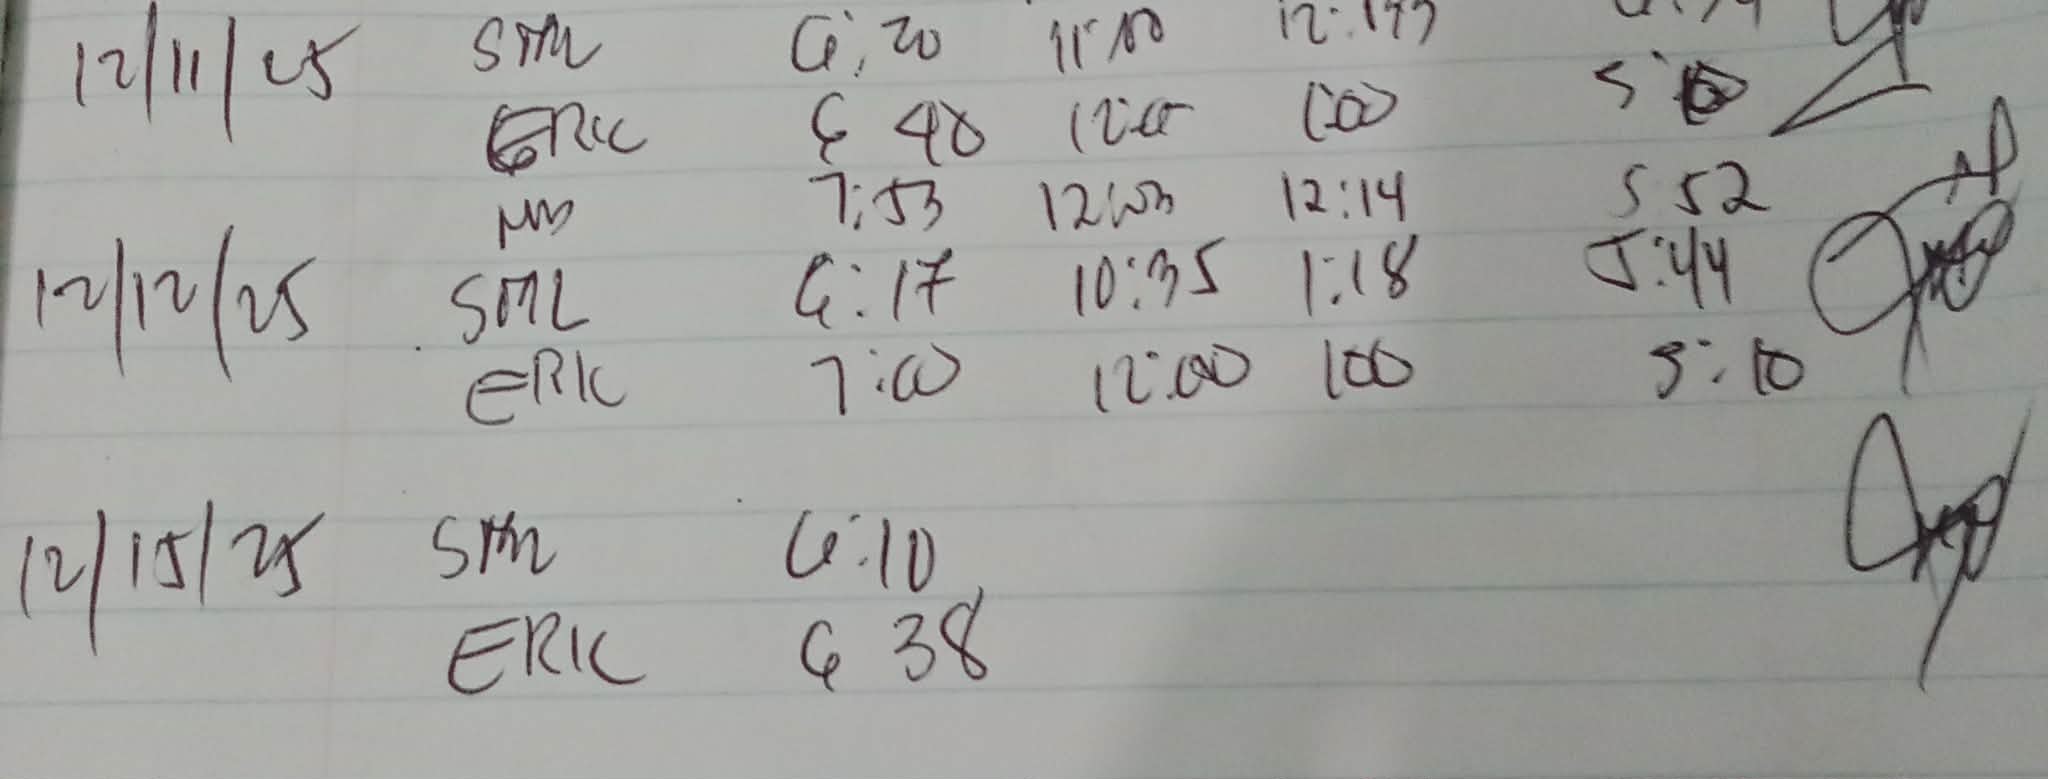 12/11/25 SML 6:20 11:00
ERIC 6 40 12:00 1:00
7:53 12:03 12:14 5 52
12/12/25 SML 6:17 10:35 1:18 5:44
ERIC 7:00 12:00 100 5:10
12/15/25 SML 6:10
ERIC 6 38